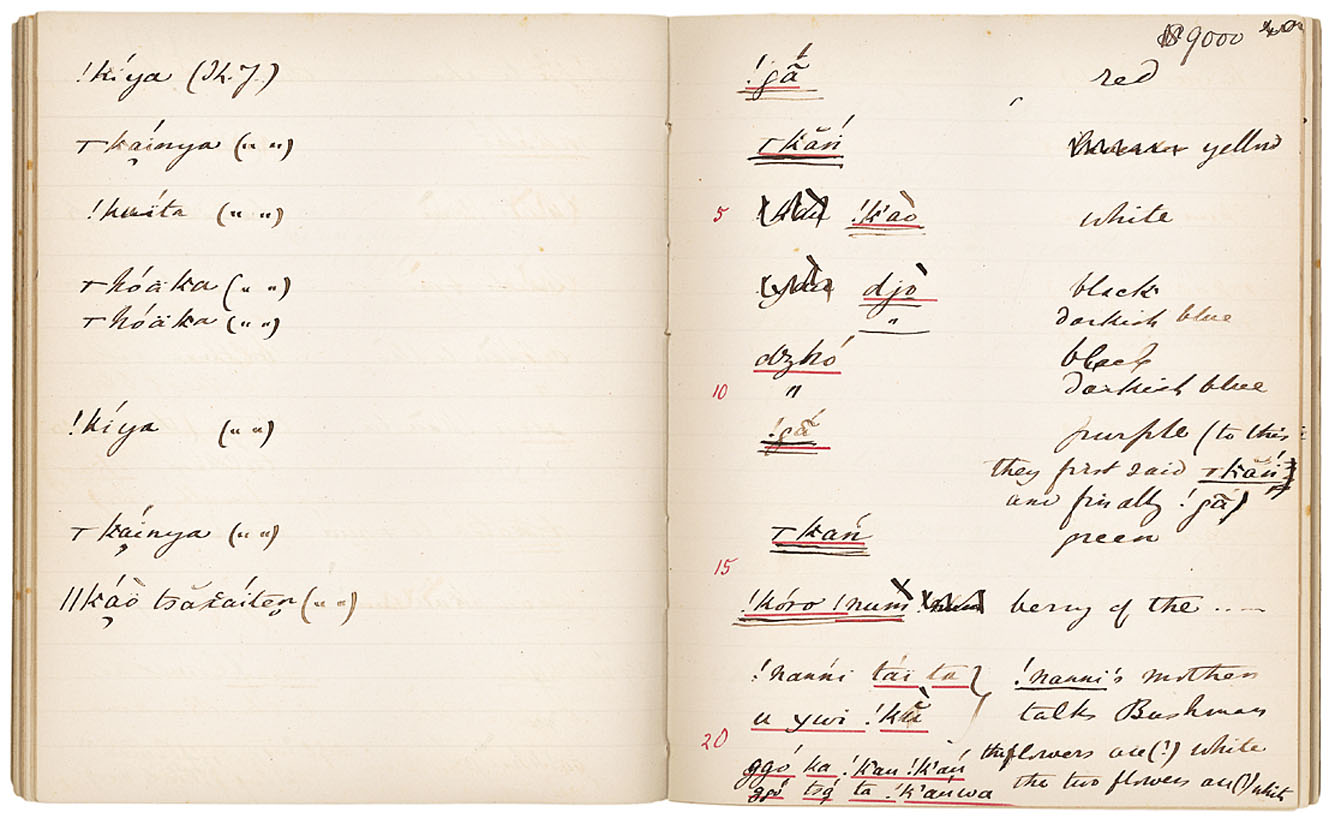 !kíya (Jk. J.)
⊤káinya (" ")
!kwaïta (" ")
⊤hóäka (" ")
⊤hóäka (" ")
!kíya (" ")
⊤káinya (" ")
ǁkáö tsăxáiten (" ")
9000
!gã́ red
⊤kãń yellow
5 !k'aò white
djò black
" darkish blue
dzhó black
10 " darkish blue
!gã́ purple (to this
they first said ⊤kãń
and finally !gã)
⊤kań green
15
!kóro !num berry of the .....
!nańni táï ta } !nanni's mother
u ywi !kù talks Bushman
20
ggó ka !kan !k'ań the flowers are(?) white
ggó tsą ta !k'ańwa the two flowers are(?) white